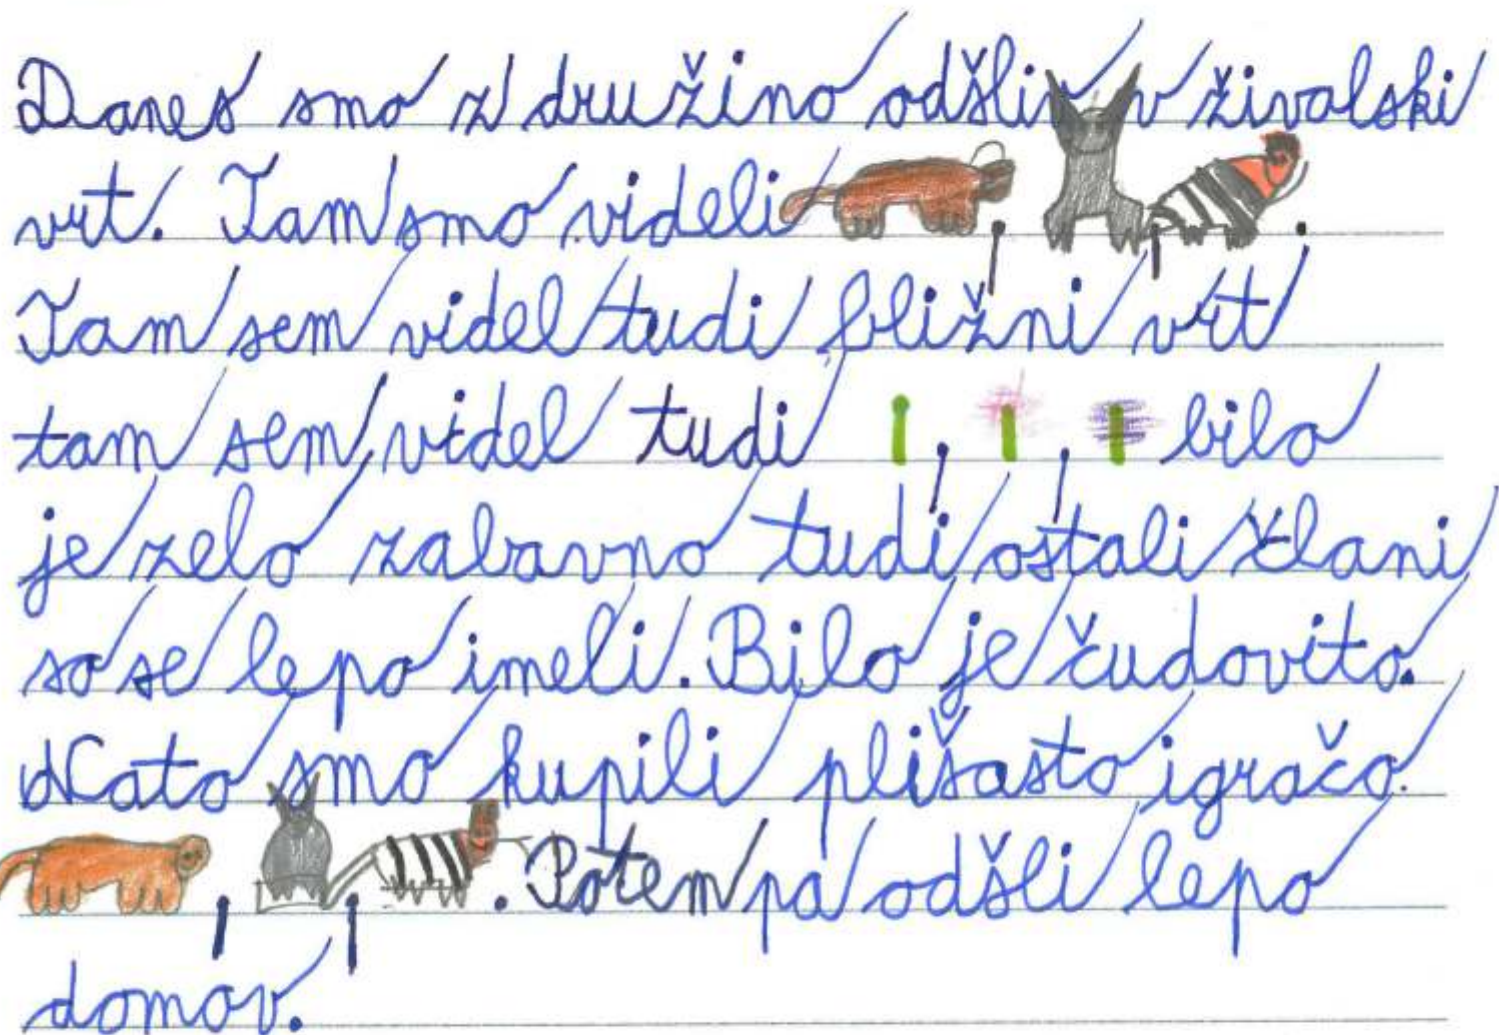 Danes smo z družino odšli v živalski
vrt. Tam smo videli , , .
Tam sem videl tudi bližni vrt
tam sem videl tudi , , bilo
je zelo zabavno tudi ostali člani
so se lepo imeli. Bilo je čudovito.
Nato smo kupili plišasto igračo.
, , . Potem pa odšli lepo
domov.